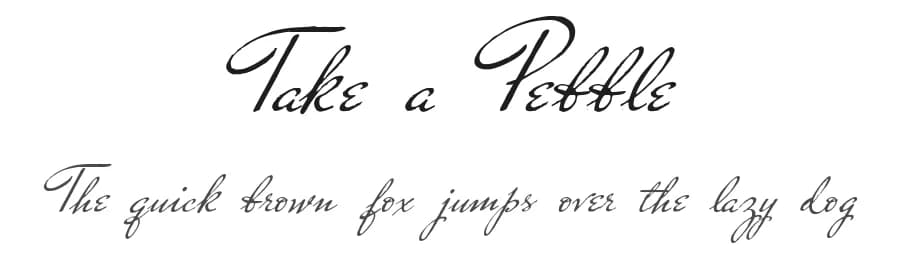 Take a Pebble
The quick brown fox jumps over the lazy dog